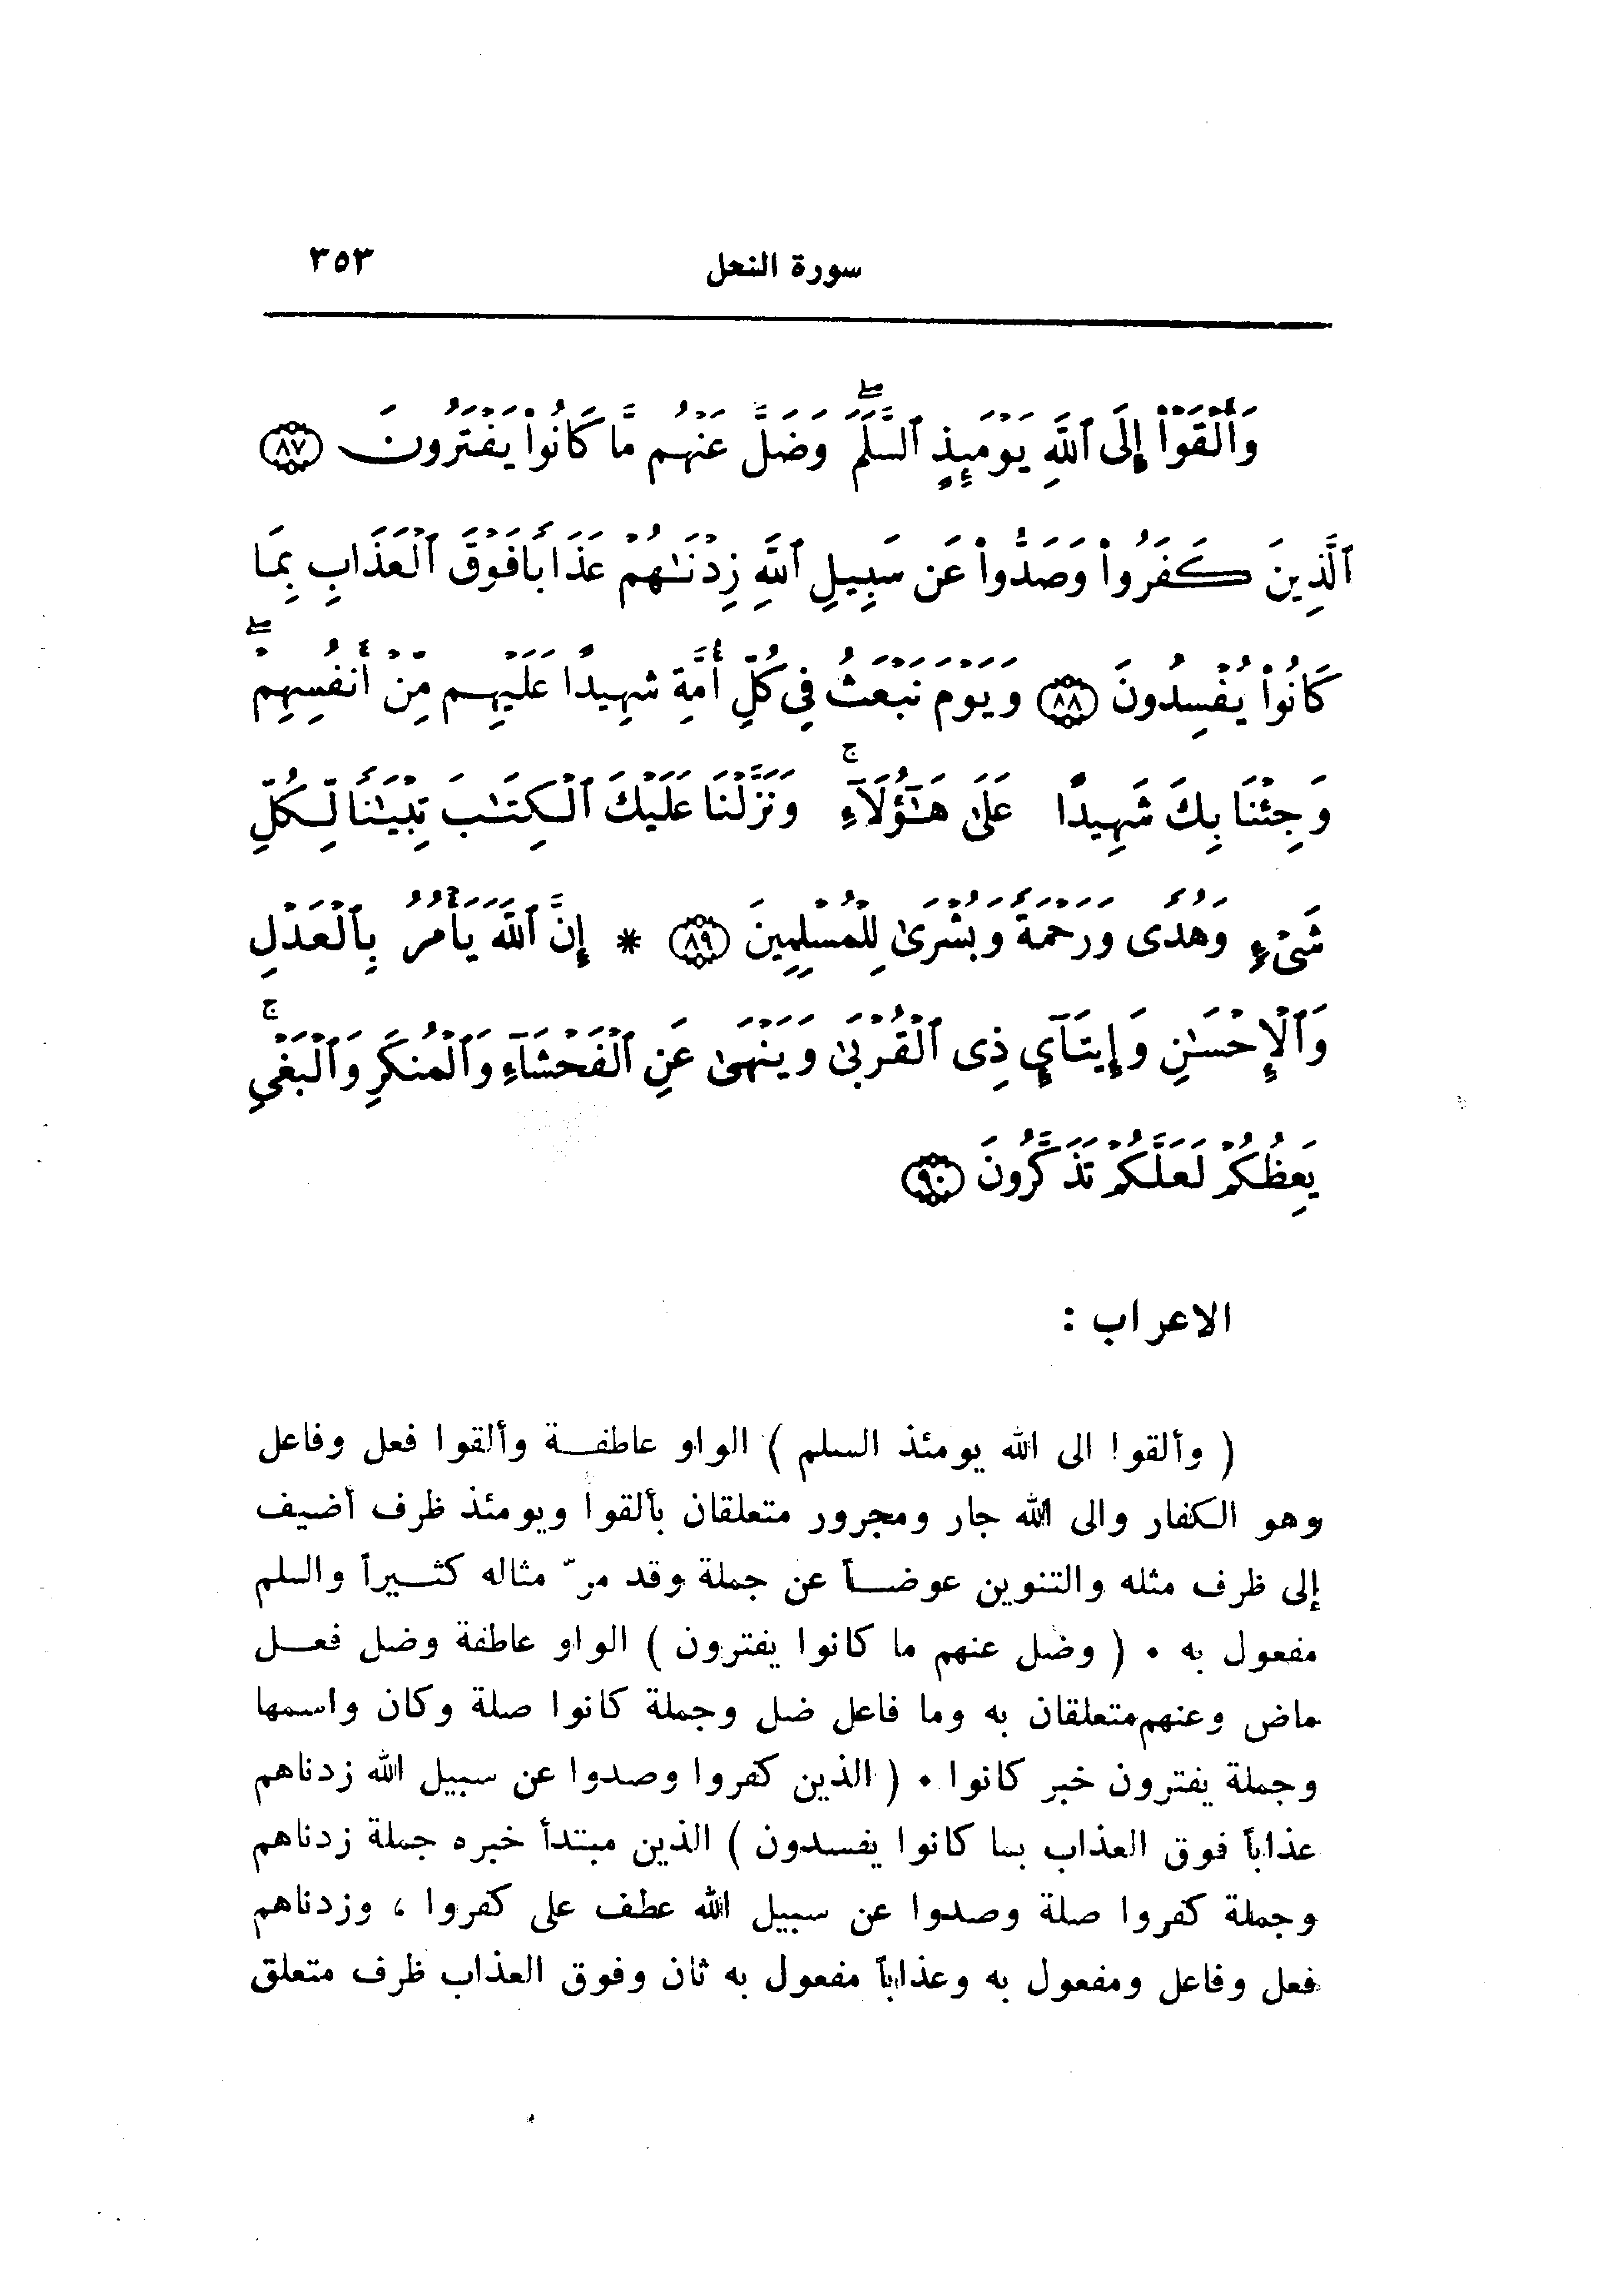 سورة النحل ٣٥٣
وَأَلْقَوْاْ إِلَى ٱللَّهِ يَوْمَئِذٍ ٱلسَّلَمَ ۖ وَضَلَّ عَنْهُم مَّا كَانُواْ يَفْتَرُونَ ﴿٨٧﴾
ٱلَّذِينَ كَفَرُواْ وَصَدُّواْ عَن سَبِيلِ ٱللَّهِ زِدْنَٰهُمْ عَذَابًا فَوْقَ ٱلْعَذَابِ بِمَا
كَانُواْ يُفْسِدُونَ ﴿٨٨﴾ وَيَوْمَ نَبْعَثُ فِي كُلِّ أُمَّةٍ شَهِيدًا عَلَيْهِم مِّنْ أَنفُسِهِمْ ۖ
وَجِئْنَا بِكَ شَهِيدًا عَلَىٰ هَٰٓؤُلَآءِ ۚ وَنَزَّلْنَا عَلَيْكَ ٱلْكِتَٰبَ تِبْيَٰنًا لِّكُلِّ
شَىْءٍ وَهُدًى وَرَحْمَةً وَبُشْرَىٰ لِلْمُسْلِمِينَ ﴿٨٩﴾ * إِنَّ ٱللَّهَ يَأْمُرُ بِٱلْعَدْلِ
وَٱلْإِحْسَٰنِ وَإِيتَآيِٕ ذِى ٱلْقُرْبَىٰ وَيَنْهَىٰ عَنِ ٱلْفَحْشَآءِ وَٱلْمُنكَرِ وَٱلْبَغْىِ ۚ
يَعِظُكُمْ لَعَلَّكُمْ تَذَكَّرُونَ ﴿٩٠﴾
الاعراب :
( وألقوا الى الله يومئذ السلم ) الواو عاطفة وألقوا فعل وفاعل
وهو الكفار والى الله جار ومجرور متعلقان بألقوا ويومئذ ظرف أضيف
إلى ظرف مثله والتنوين عوضاً عن جملة وقد مرّ مثاله كثيراً والسلم
مفعول به ٠ ( وضل عنهم ما كانوا يفترون ) الواو عاطفة وضل فعل
ماض وعنهم متعلقان به وما فاعل ضل وجملة كانوا صلة وكان واسمها
وجملة يفترون خبر كانوا ٠ ( الذين كفروا وصدوا عن سبيل الله زدناهم
عذاباً فوق العذاب بما كانوا يفسدون ) الذين مبتدأ خبره جملة زدناهم
وجملة كفروا صلة وصدوا عن سبيل الله عطف على كفروا ، وزدناهم
فعل وفاعل ومفعول به وعذاباً مفعول به ثان وفوق العذاب ظرف متعلق